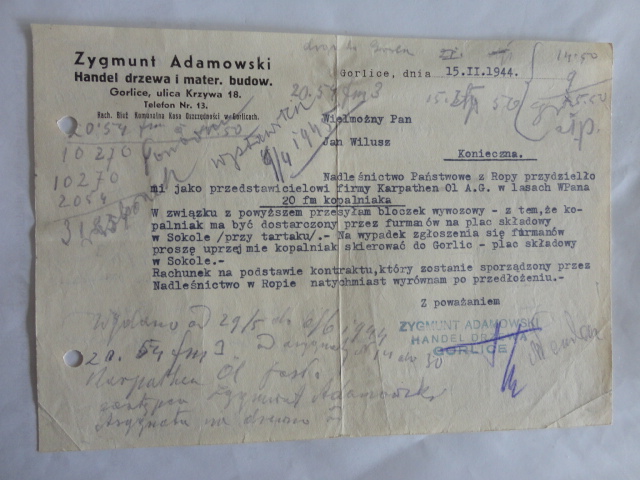 Zygmunt Adamowski
Handel drzewa i mater. budow.
Gorlice, ulica Krzywa 18.
Telefon Nr. 13.
Rach. Komunalna Kasa Oszczędności w Gorlicach.
Gorlice, dnia 15.II.1944.
20.54 fm3
14.50
9
Wielmożny Pan
Jan Wilusz
Konieczna.
20.54 fm
10270
10270
2054
Nadleśnictwo Państwowe z Ropy przydzieło
mi jako przedstawicielowi firmy Karpathen Ol A.G. w lasach WPana
20 fm kopalniaka
W związku z powyższem przesyłam bloczek wywozowy - z tem,że ko-
palniak ma być dostarczony przez furmanów na plac składowy
w Sokole /przy tartaku/.- Na wypadek zgłoszenia się furmanów
proszę uprzejmie kopalniak skierować do Gorlic - plac składowy
w Sokole.-
Rachunek na podstawie kontraktu,który zostanie sporządzony przez
Nadleśnictwo w Ropie natychmiast wyrównam po przedłożeniu.-
Z poważaniem
ZYGMUNT ADAMOWSKI
HANDEL DRZEWA
GORLICE
Wydano od 29/5 do 6/6 1944
20.54 fm3 od do 30
Karpathen Öl
Zygmunt Adamowski
Asygnata na drzewo